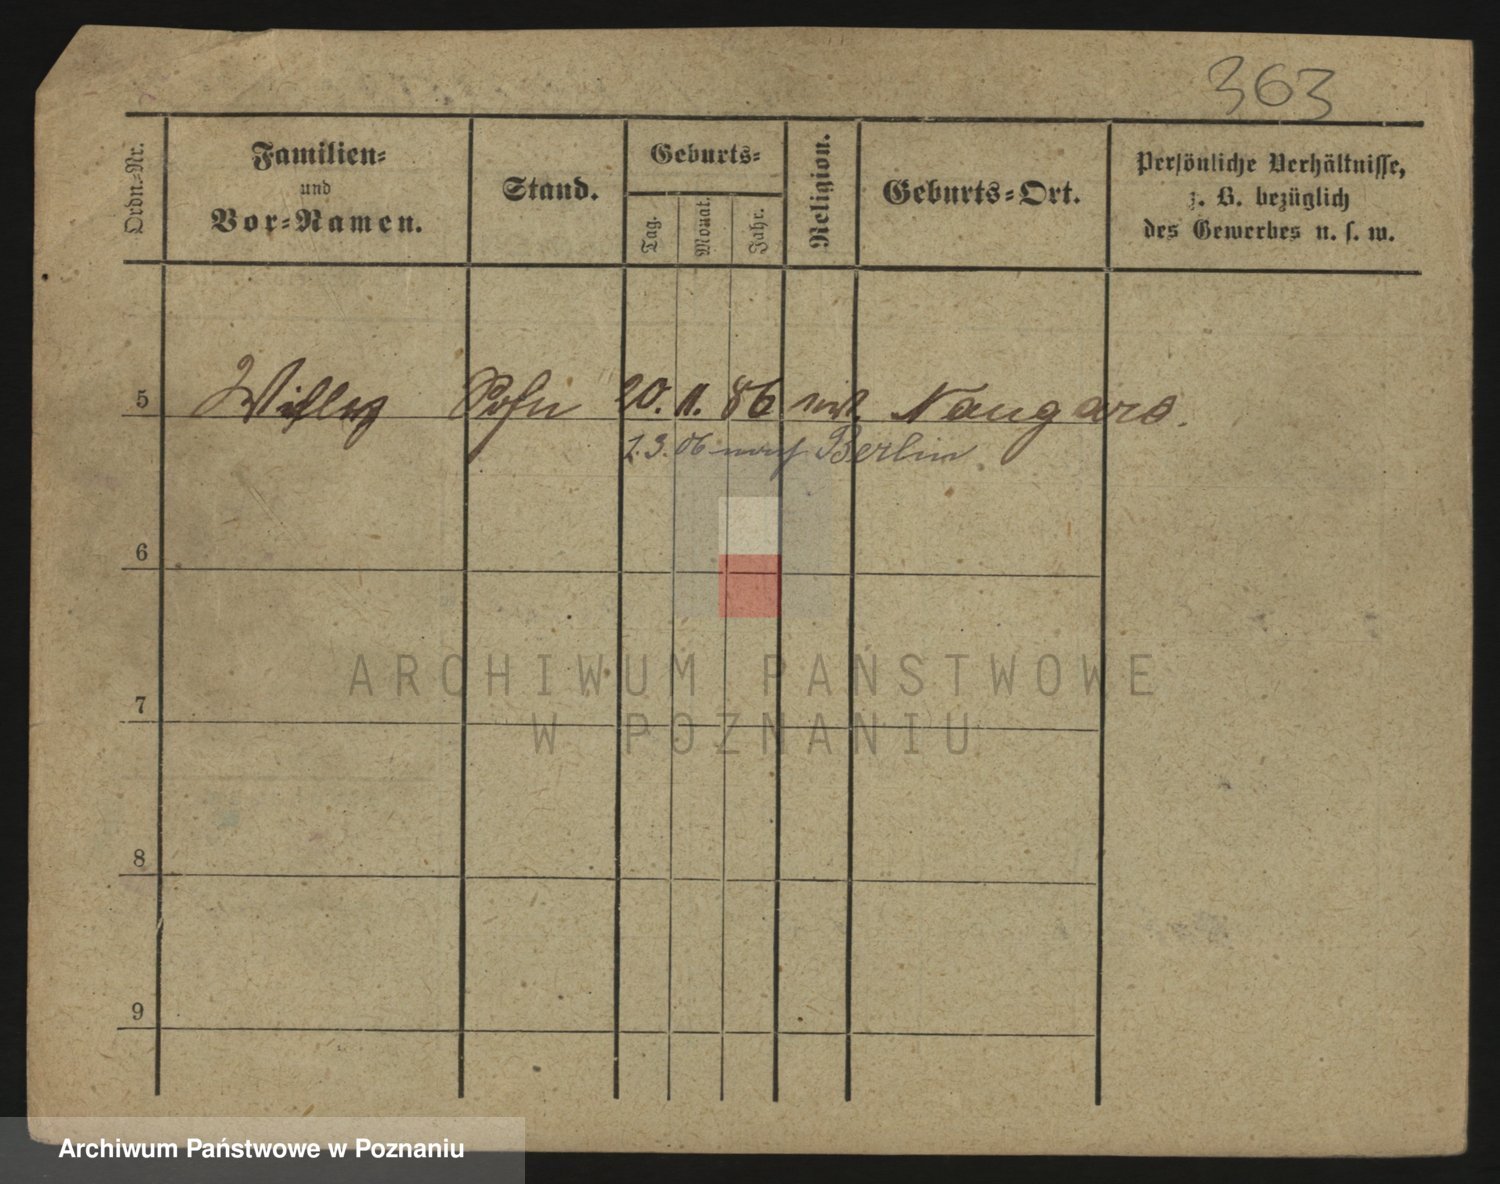 363
Ordn.-Nr.
Familien-
und
Vor-Namen.
Stand.
Geburts-
Tag.
Monat.
Jahr.
Religion.
Geburts-Ort.
Persönliche Verhältnisse,
z. B. bezüglich
des Gewerbes u. s. w.
5 Willy Sohn 20. 11. 86 Naugard.
1.3.06 nach Berlin
6
7
8
9
ARCHIWUM PAŃSTWOWE
W POZNANIU
Archiwum Państwowe w Poznaniu